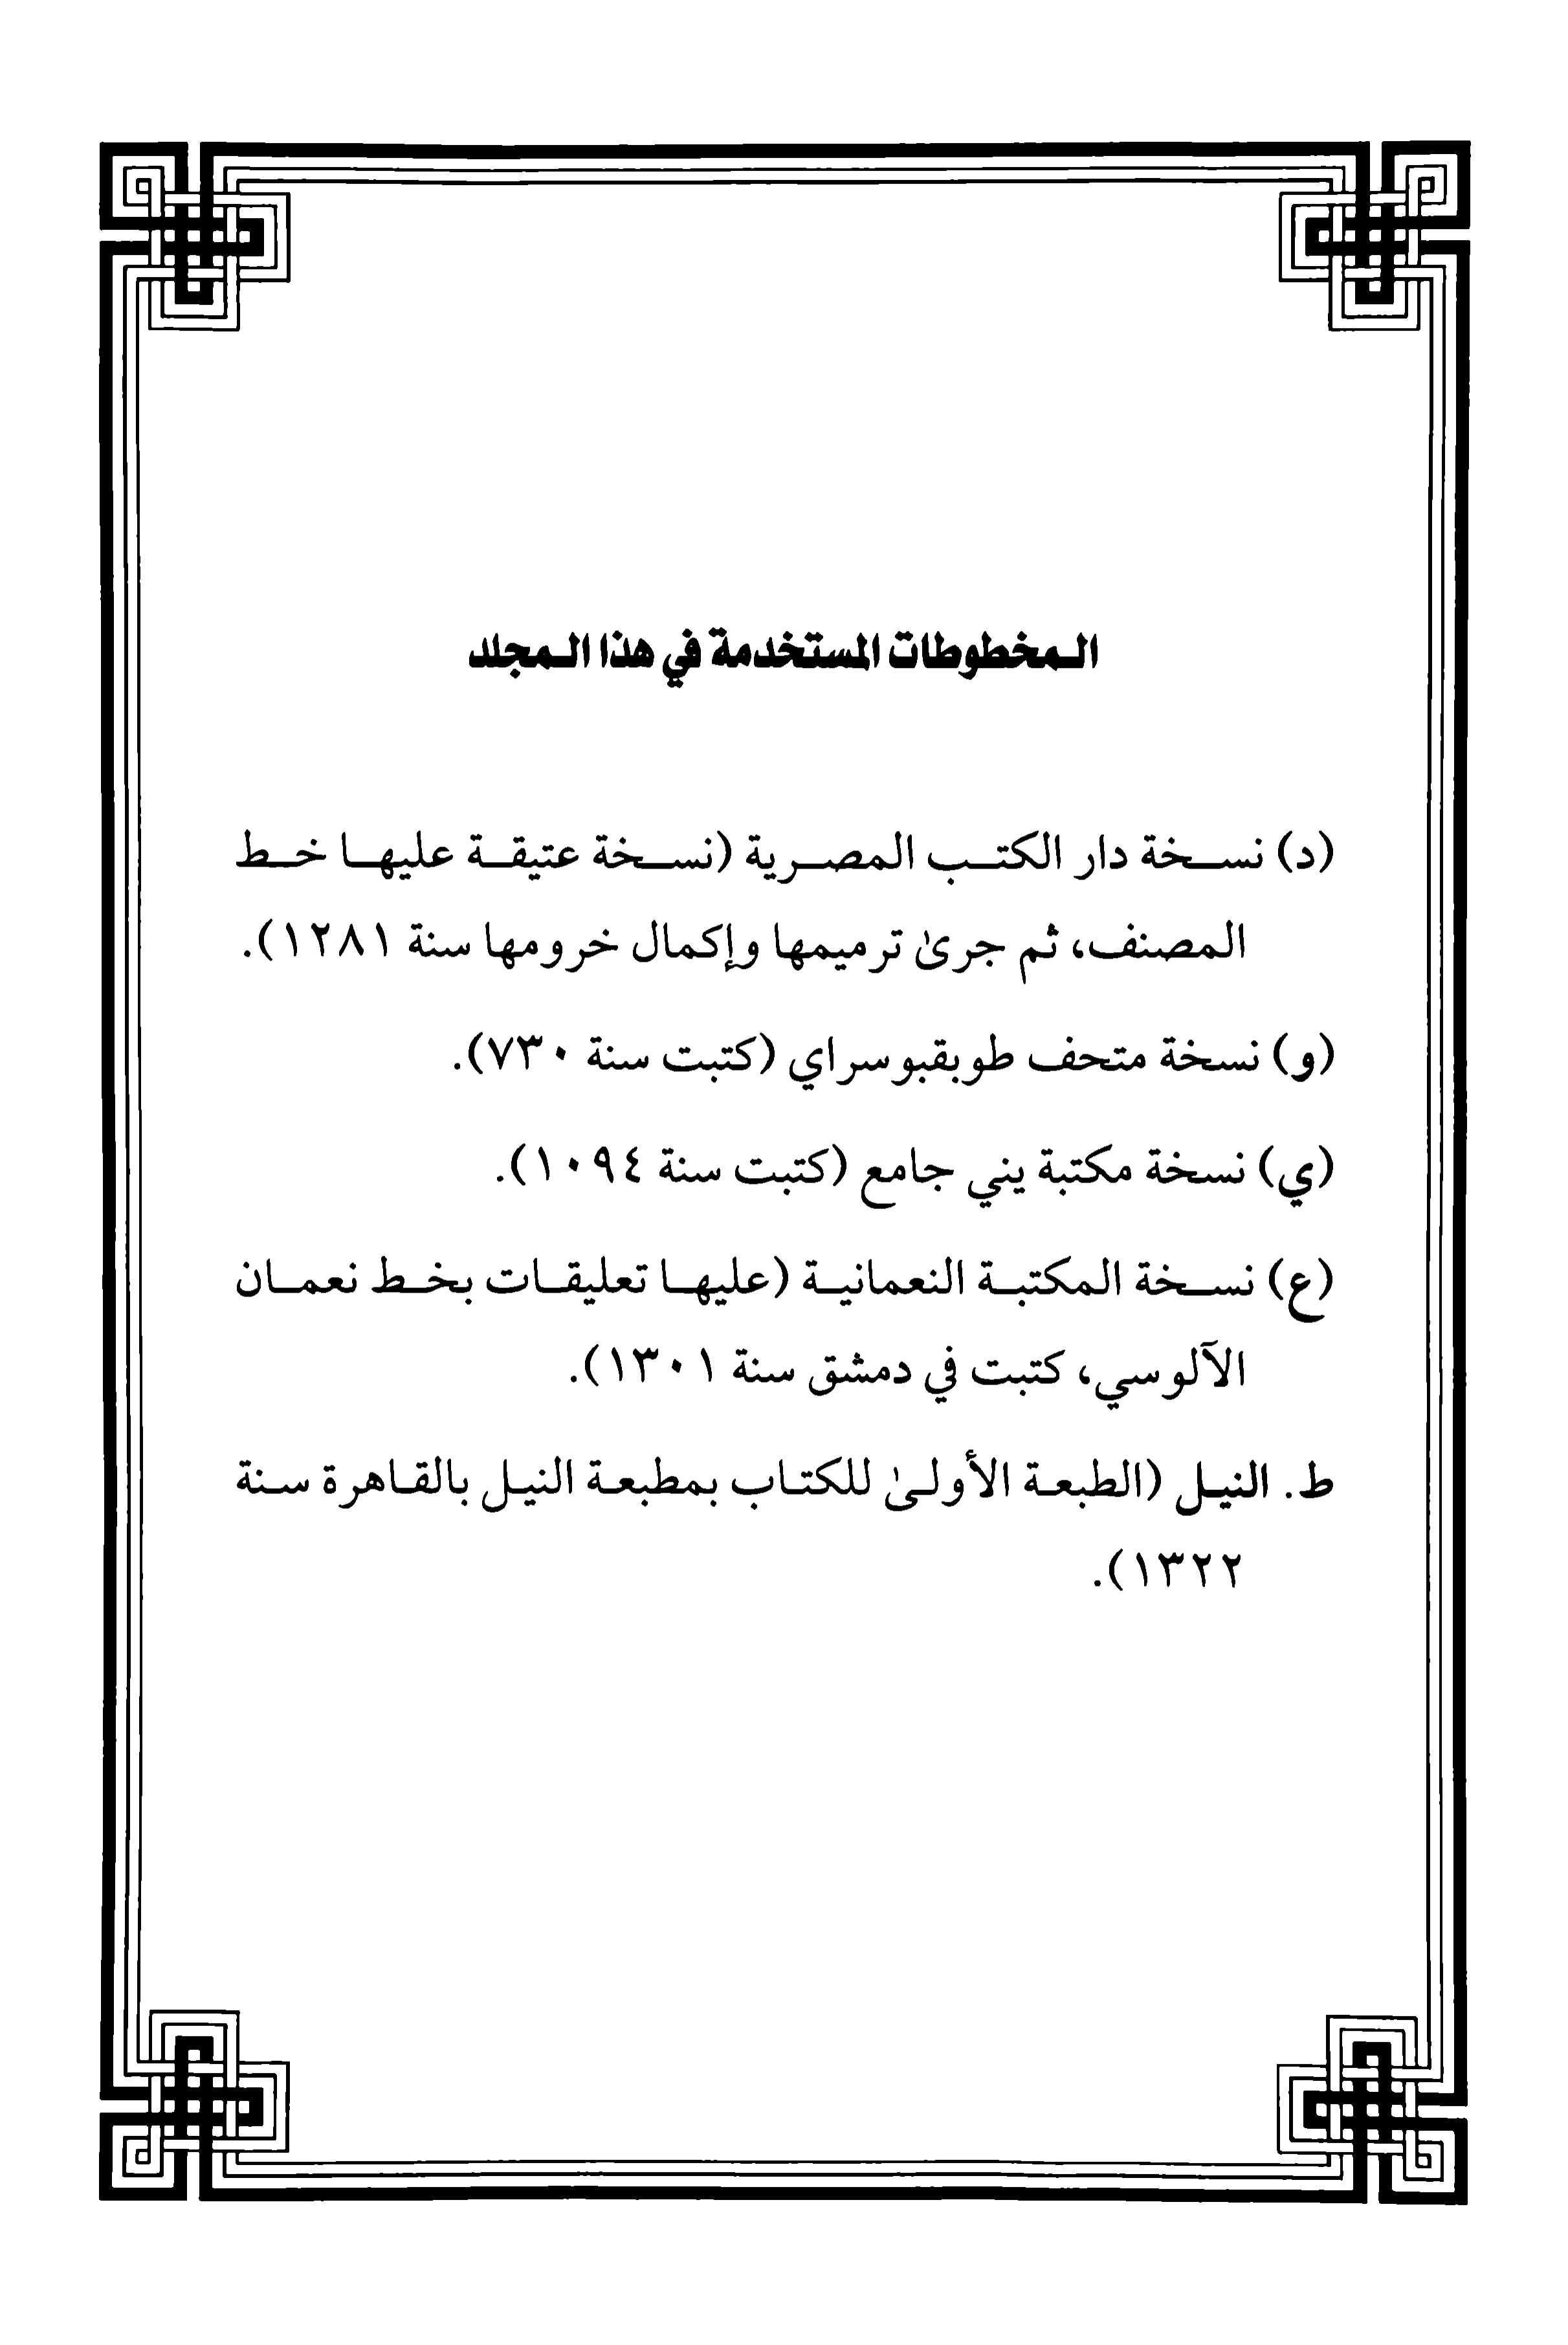 المخطوطات المستخدمة في هذا المجلد
(د) نسخة دار الكتب المصرية (نسخة عتيقة عليها خط
المصنف، ثم جرىٰ ترميمها وإكمال خرومها سنة ١٢٨١).
(و) نسخة متحف طوبقبوسراي (كتبت سنة ٧٣٠).
(ي) نسخة مكتبة يني جامع (كتبت سنة ١٠٩٤).
(ع) نسخة المكتبة النعمانية (عليها تعليقات بخط نعمان
الآلوسي، كتبت في دمشق سنة ١٣٠١).
ط. النيل (الطبعة الأولىٰ للكتاب بمطبعة النيل بالقاهرة سنة
١٣٢٢).